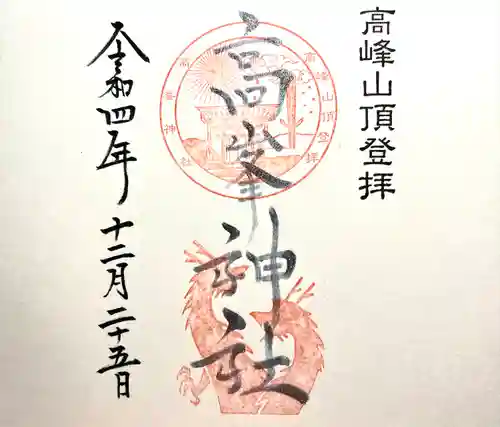 高峰山頂登拝
高峯神社
高峰山頂登拝
高峯神社
令和四年 十二月二十五日